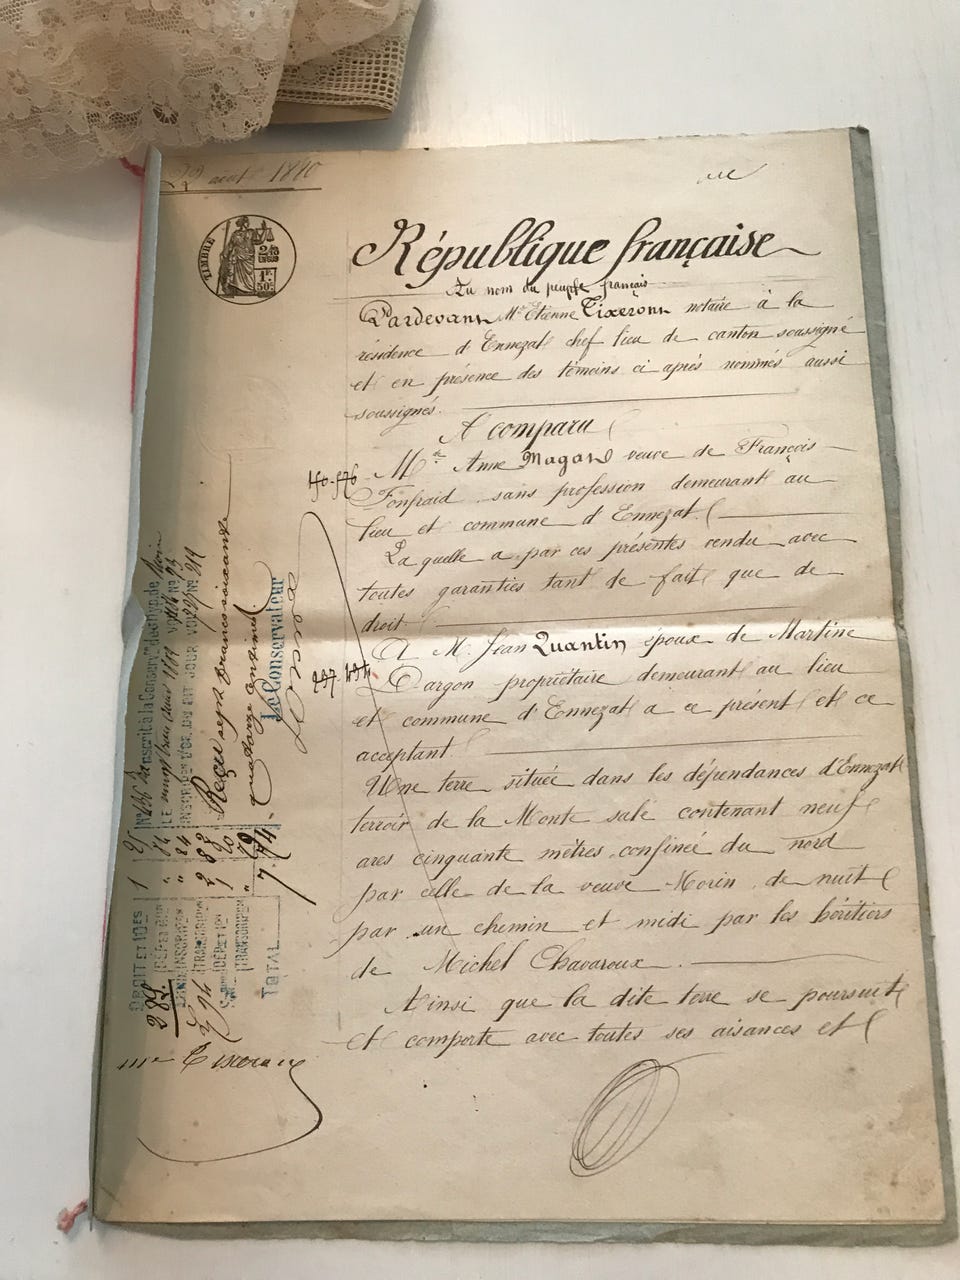 août 1890
TIMBRE
1F.
50c
République française
Au nom du peuple français
Pardevant Me Etienne Tixeron notaire à la
résidence d'Ennezat chef lieu de canton soussigné
et en présence des témoins ci après nommés aussi
soussignés.
A comparu
Anne Magard veuve de François
Fonfraid sans profession demeurant au
lieu et commune d'Ennezat.
La quelle a par ces présentes vendu avec
toutes garanties tant de fait que de
droit.
A M. Jean Quantin époux de Martine
Dargon propriétaire demeurant au lieu
et commune d'Ennezat à ce présent et ce
acceptant.
Une terre située dans les dépendances d'Ennezat
terroir de la Monte salé contenant neuf
ares cinquante mètres confinée du nord
par celle de la veuve Morin, de nuit
par un chemin et midi par les héritiers
de Michel Chavaroux.
Ainsi que la dite terre se poursuit
et comporte avec toutes ses aisances et
transcrit à la Conserv
LE
INSCRIPT. D'OF. DU DIT JOUR VOL. No
Reçu sept francs soixante
quatorze centimes
Le Conservateur
DROIT ET 10ES
TOTAL
7 74